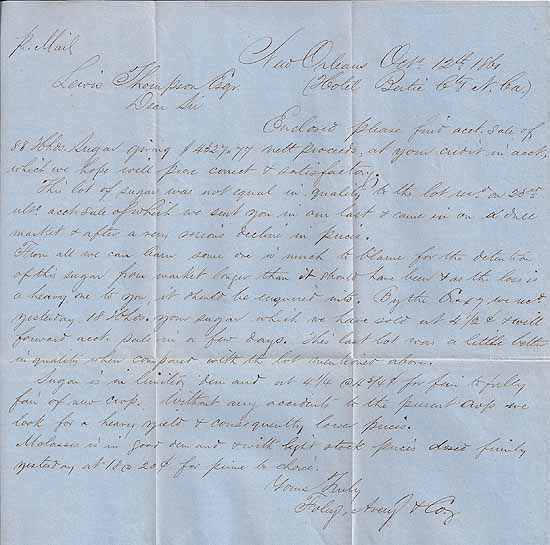 pr. Mail
New Orleans Oct. 12th 1861
Lewis Thompson Esqr. (Hotel Bertie Co N. Ca)
Dear Sir
Enclosed please find acct. sale of
88 Hhds. Sugar giving $4327.77 nett proceeds, at your credit in acct,
which we hope will prove correct & satisfactory.
This lot of sugar was not equal in quality to the lot recd. on 23rd
ulto. acct sale of which we sent you in our last & came in on a dull
market & after a very serious decline in prices.
From all we can learn some one is much to blame for the detention
of this sugar from market longer than it should have been & as the loss is
a heavy one to you, it should be enquired into. By the we recd
yesterday 18 Hhds. your sugar which we have sold at & will
forward acct. sale in a few days. This last lot was a little better
in quality when compared with the lot mentioned above.
Sugar is in limited demand at 4 1/4 @ 4 3/4¢ for fair to fully
fair of new crop. Without any accident to the present crop we
look for a heavy yield & consequently lower prices.
Molasses is in good demand & with light stock prices closed firmly
yesterday at 18 @ 20¢ for prime to choice.
Yours Truly
Foley, Avery & Co.